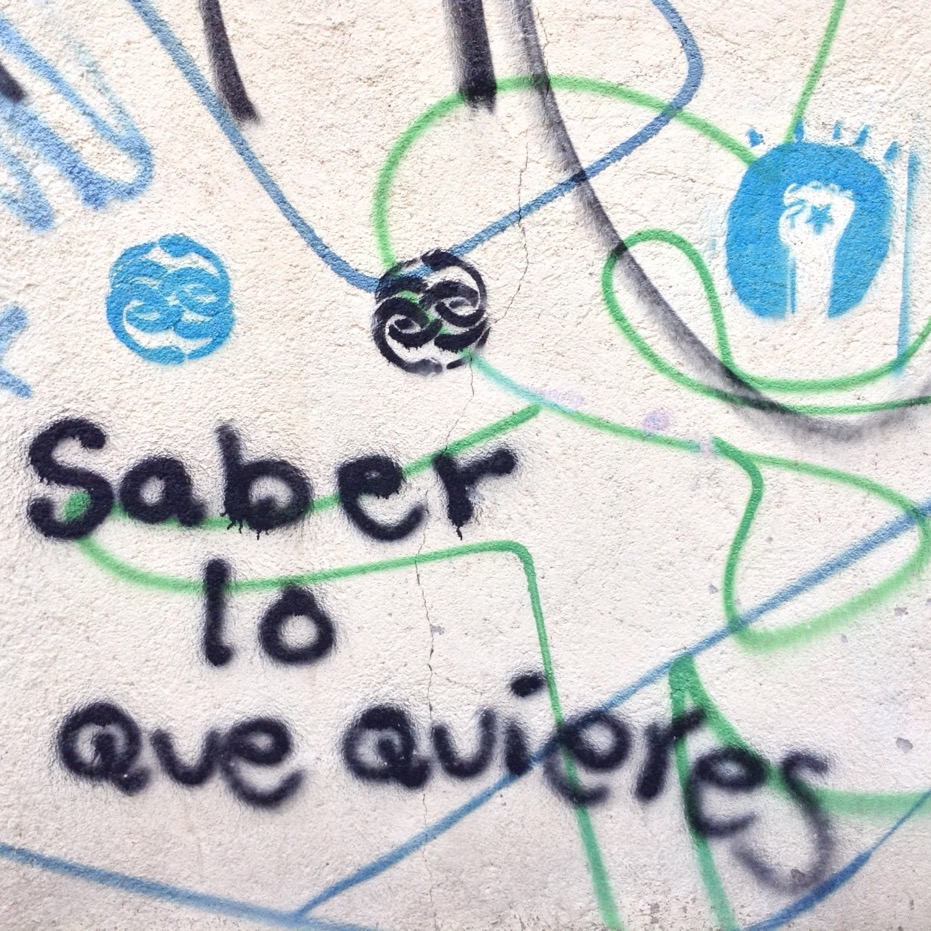 Saber
lo
que quieres